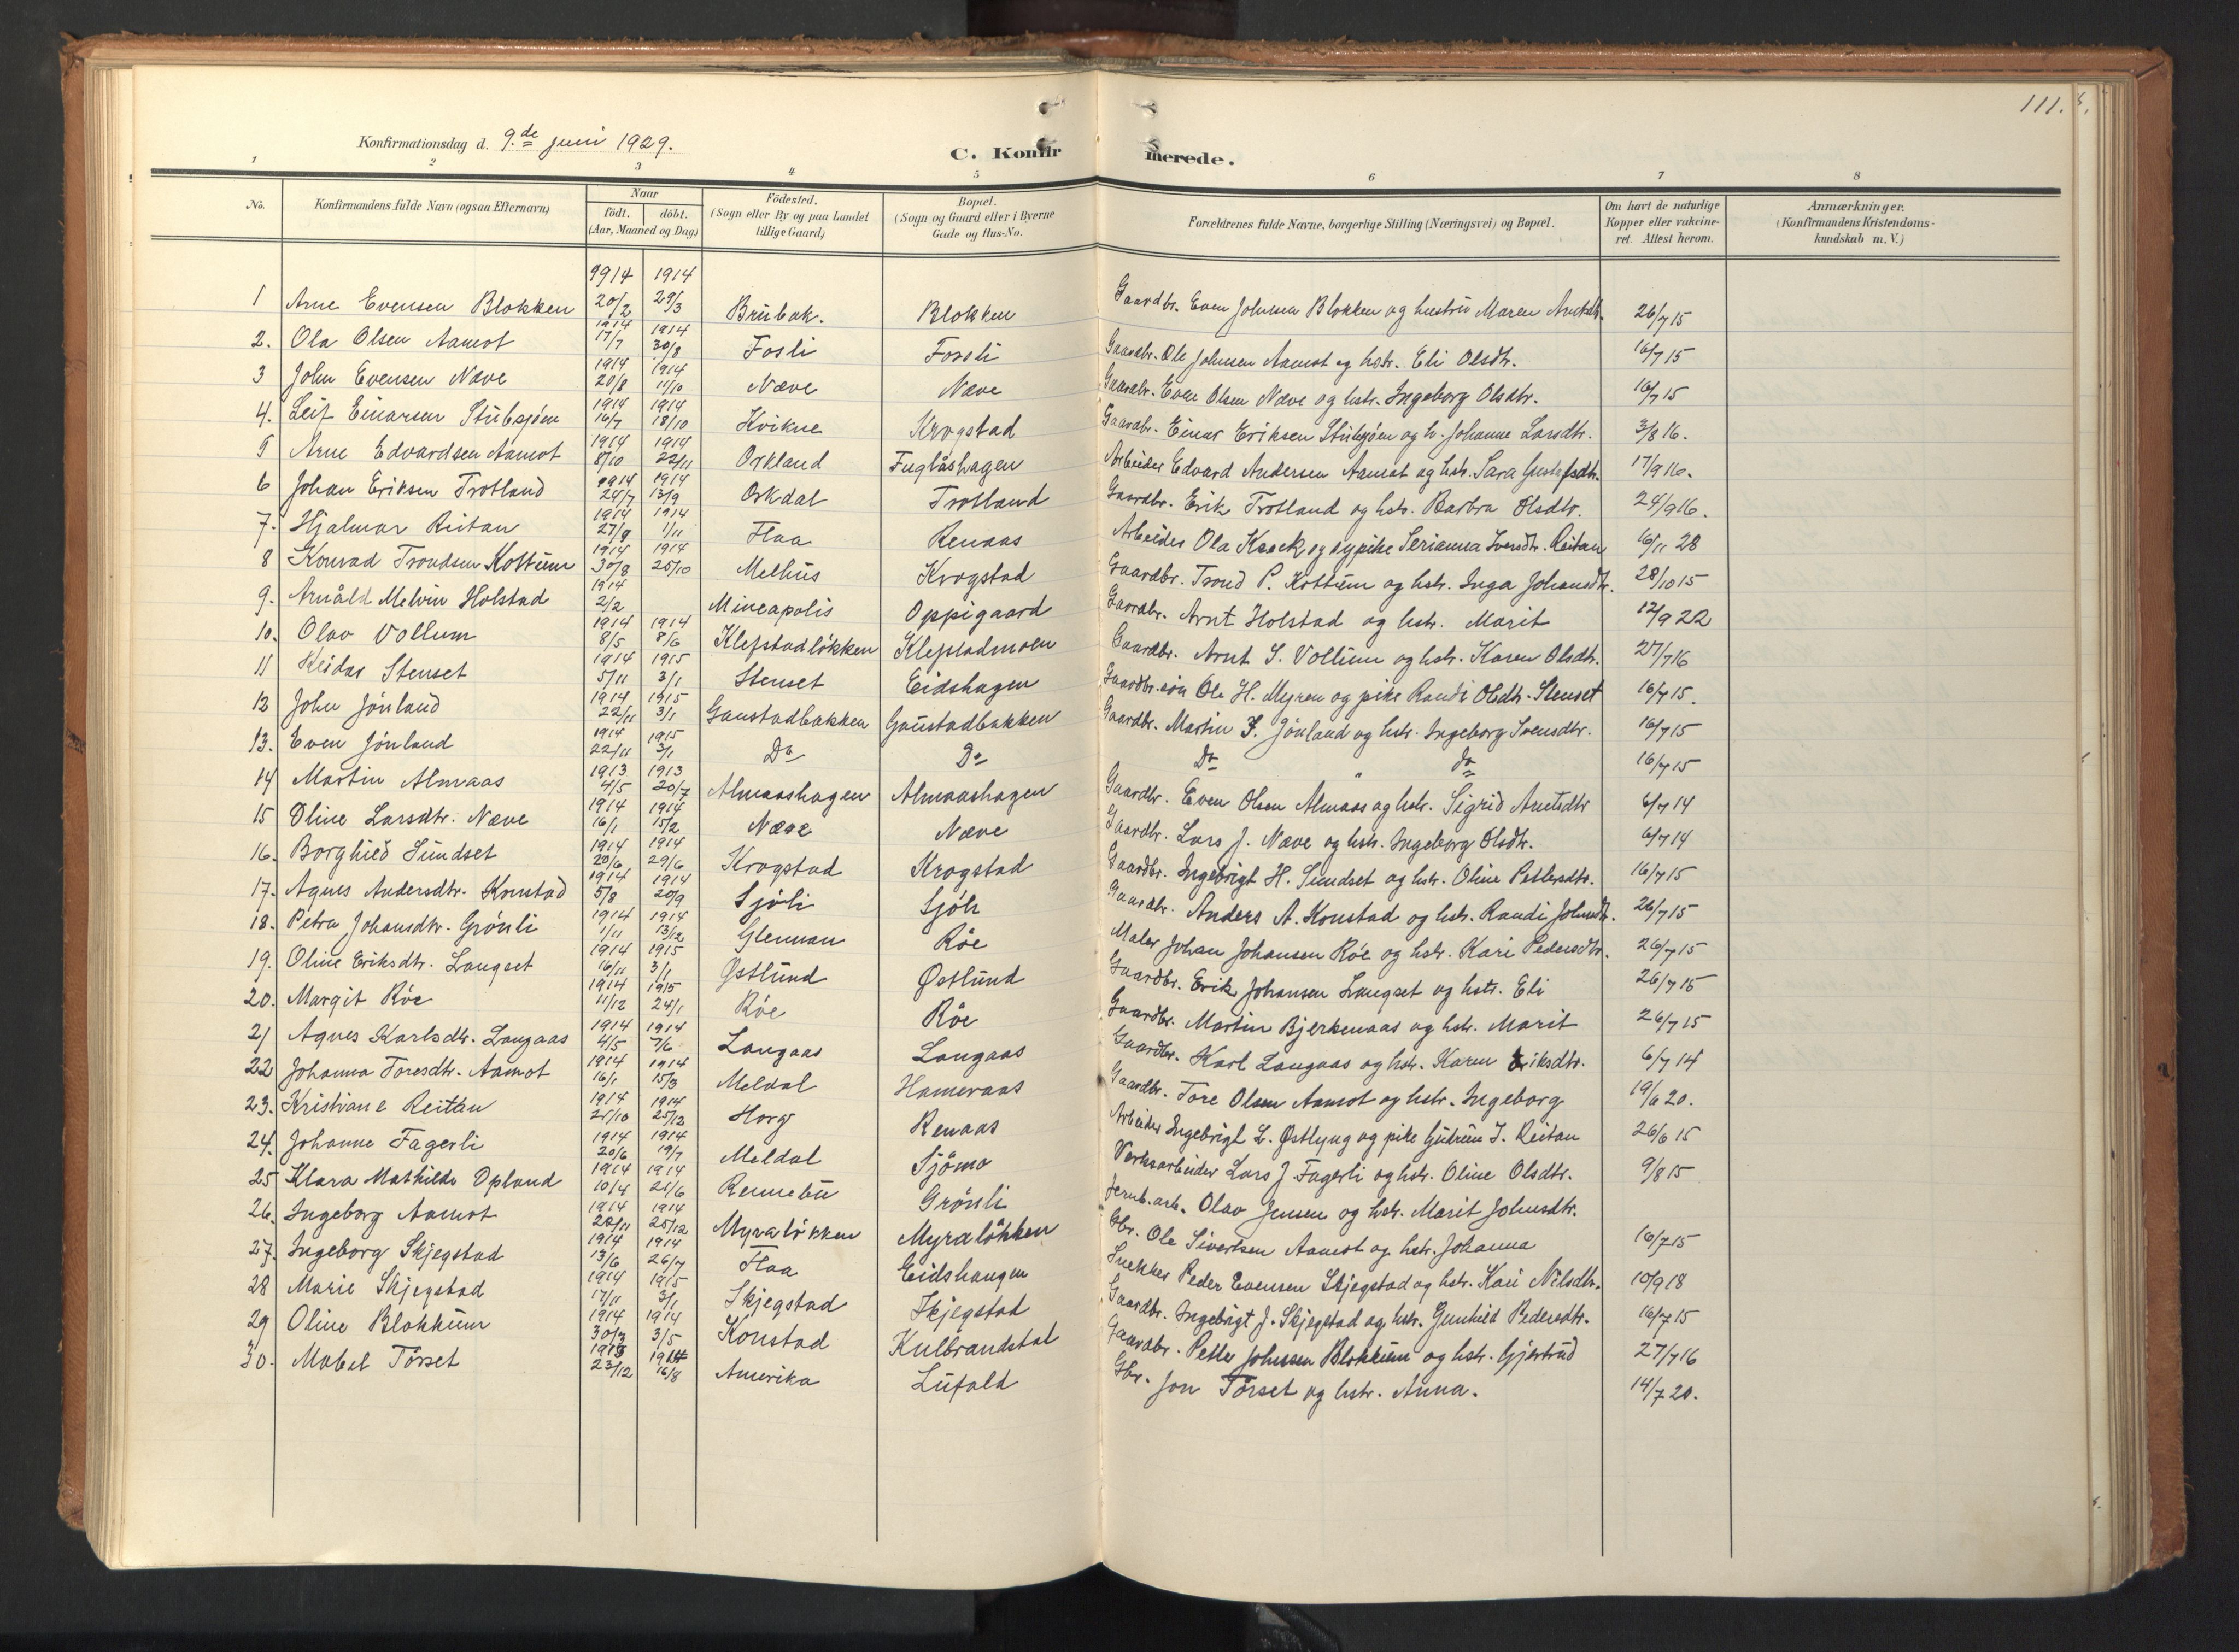 111.
Konfirmationsdag d. 9.de juni 1929.
C. Konfirmerede.
1 2 3 4 5 6 7 8
No. Konfirmandens fulde Navn (ogsaa Efternavn) Naar födt. döbt. (Aar, Maaned og Dag) Födested. (Sogn eller By og paa Landet tillige Gaard) Bopæl. (Sogn og Gaard eller i Byerne Gade og Hus-No. Forældrenes fulde Navne, borgerlige Stilling (Næringsvei) og Bopæl. Om havt de naturlige Kopper eller vakcineret. Attest herom. Anmærkninger. (Konfirmandens Kristendomskundskab m. V.)
1 Arne Evensen Blokken 1914 20/2 1914 29/3 Brubak. Blokken Gaardbr. Even Johnsen Blokken og hustru Maren Arntsdtr. 26/7 15
2. Ola Olsen Aamot 1914 17/7 1914 30/8 Fosli Fosli Gaardbr. Ole Johnsen Aamot og hstr. Eli Olsdtr. 16/7 15
3 John Evensen Næve 1914 20/8 1914 11/10 Næve Næve Gaardbr. Even Olsen Næve og hstr. Ingeborg Olsdtr. 16/7 15
4. Leif Einarsen Stubsjöen 1914 16/7 1914 18/10 Kvikne Krogstad Gaardbr. Einar Eriksen Stubsjöen og h. Johanne Larsdtr. 3/8 16.
5 Arne Edvardsen Aamot 1914 8/10 1914 22/11 Orkland Fuglåshagen Arbeider Edvard Andersen Aamot og hstr. Sara Gustafsdtr. 17/9 16.
6 Johan Eriksen Trotland 1914 24/7 1914 13/9 Orkdal Trotland Gaardbr. Erik Trotland og hstr. Barbra Olsdtr. 24/9 16.
7. Hjalmar Reitan 1914 27/9 1914 1/11 Flaa Renaas Arbeider Ola Kaack og sypike Serianna Iversdtr. Reitan 16/11 28
8 Konrad Trondsen Kottum 1914 30/8 1914 25/10 Melhus Krogstad Gaardbr. Trond P. Kottum og hstr. Inga Johansdtr. 28/10 15
9. Arnåld Melvin Holstad 1914 2/2 Mineapolis Oppigaard Gaardbr. Arnt Holstad og hstr. Marit 12/9 22
10. Olav Vollum 1914 8/5 1914 8/6 Klefstadlökken Klefstadmoen Gaardbr. Arnt S. Vollum og hstr. Karen Olsdtr. 27/7 16
11 Reidar Stenset 1914 5/11 1915 3/1 Stenset Eidshagen Gaardbr.sön Ole H. Myren og pike Randi Olsdtr. Stenset 16/7 15.
12 John Jönland 1914 22/11 1915 3/1 Gaustadbakken Gaustadbakken Gaardbr. Martin J. Jönland og hstr. Ingeborg Svensdtr. 16/7 15
13. Even Jönland 1914 22/11 1915 3/1 Do Do Do " do 16/7 15
14 Martin Almaas 1913 4/5 1913 20/7 Almaashagen Almaashagen Gaardbr. Even Olsen Almaas og hstr. Sigrid Arntsdtr 6/7 14
15 Oline Larsdtr. Næve 1914 16/1 1914 15/2 Næve Næve Gaardbr. Lars J. Næve og hstr. Ingeborg Olsdtr. 6/7 14
16. Borghild Sundset 1914 20/6 1914 29/6 Krogstad Krogstad Gaardbr. Ingebrigt H. Sundset og hstr. Oline Pettersdtr. 16/7 15
17. Agnes Andersdtr. Konstad 1914 5/8 1914 20/9 Sjöli Sjöli Gaardbr. Anders A. Konstad og hstr. Randi Johnsdtr. 26/7 15
18. Petra Johansdtr. Grönli 1914 1/11 1914 13/12 Glennan Röe Maler Johan Johansen Röe og hstr. Kari Pedersdtr. 26/7 15
19. Oline Eriksdtr. Langset 1914 16/11 1915 3/1 Østlund Østlund Gaardbr. Erik Johansen Langset og hstr. Eli 26/7 15
20. Margit Röe 1914 11/12 1915 24/1 Röe Röe Gaardbr. Martin Bjerkenaas og hstr. Marit 26/7 15
21 Agnes Karlsdtr. Langaas 1914 4/5 1914 7/6 Langaas Langaas Gaardbr. Karl Langaas og hstr. Karen Eriksdtr. 6/7 14
22 Johanna Toresdtr. Aamot 1914 16/1 1914 15/3 Meldal Hameraas Gaardbr. Tore Olsen Aamot og hstr. Ingeborg 19/6 20.
23. Kristiane Reitan 1914 25/10 1914 25/12 Horg Renaas Arbeider Ingebrigt L. Østlyng og pike Gudrun I. Reitan 26/6 15
24. Johanne Fagerli 1914 20/6 1914 19/7 Meldal Sjömo Verksarbeider Lars J. Fagerli og hstr. Oline Olsdtr. 9/8 15
25 Klara Mathilde Opland 1914 10/4 1914 21/6 Rennebu Grönli Jernb.arb. Olav Jensen og hstr. Marit Johnsdtr.
26. Ingeborg Aamot 1914 22/11 1914 25/12 Myralökken Myralökken Gbr. Ole Sivertsen Aamot og hstr. Johanna 16/7 15
27. Ingeborg Skjegstad 1914 13/6 1914 26/7 Flaa Eidshaugen Snekker Peder Evensen Skjegstad og hstr. Kari Nilsdtr. 10/9 18
28 Marie Skjegstad 1914 17/11 1915 3/1 Skjegstad Skjegstad Gaardbr. Ingebrigt J. Skjegstad og hstr. Gunhild Pedersdtr. 16/7 15
29 Oline Blokkum 1914 30/3 1914 3/5 Konstad Kulbrandstal Gaardbr. Petter Johnsen Blokkum og hstr. Gjertrud 27/7 16
30. Mabel Törset 1913 23/12 1914 16/8 Amerika Lufald Gbr. Jon Törset og hstr. Anna. 14/7 20.